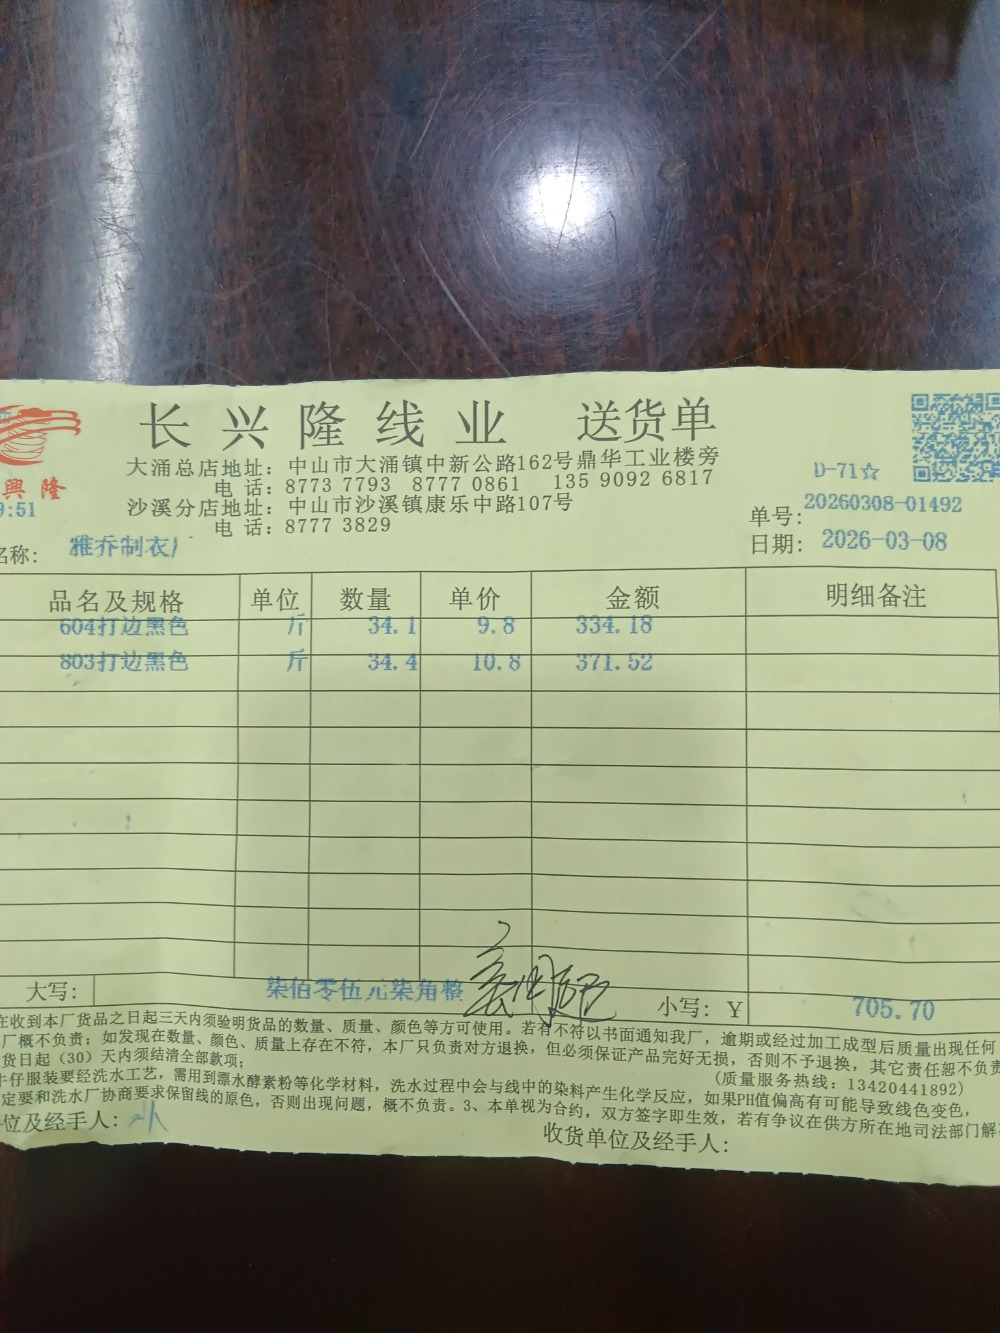 长兴隆线业 送货单
大涌总店地址：中山市大涌镇中新公路162号鼎华工业楼旁
电 话：8773 7793 8777 0861 135 9092 6817
沙溪分店地址：中山市沙溪镇康乐中路107号
电 话：8777 3829
興隆
9:51
D-71☆
单号：20260308-01492
日期：2026-03-08
名称：雅乔制衣厂
品名及规格 单位 数量 单价 金额 明细备注
604打边黑色 斤 34.1 9.8 334.18
803打边黑色 斤 34.4 10.8 371.52
大写：柒佰零伍元柒角整 小写：￥705.70
在收到本厂货品之日起三天内须验明货品的数量、质量、颜色等方可使用。若有不符以书面通知我厂，逾期或经过加工成型后质量出现任何
厂概不负责；如发现在数量、颜色、质量上存在不符，本厂只负责对方退换，但必须保证产品完好无损，否则不予退换，其它责任恕不负责
货日起（30）天内须结清全部款项；
（质量服务热线：13420441892）
牛仔服装要经洗水工艺，需用到漂水酵素粉等化学材料，洗水过程中会与线中的染料产生化学反应，如果PH值偏高有可能导致线色变色，
定要和洗水厂协商要求保留线的原色，否则出现问题，概不负责。3、本单视为合约，双方签字即生效，若有争议在供方所在地司法部门解
位及经手人：
收货单位及经手人：